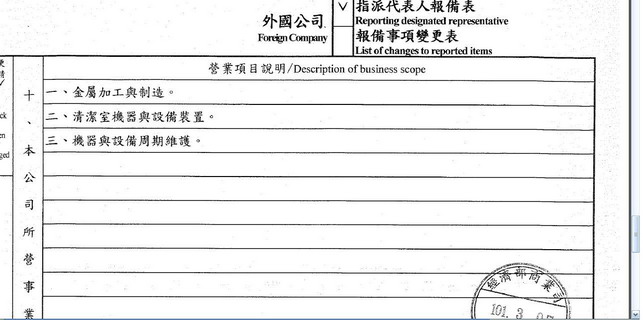 外國公司
Foreign Company
✓
指派代表人報備表
Reporting designated representative
報備事項變更表
List of changes to reported items
營業項目說明/Description of business scope
十、本公司所營事業
一、金屬加工與制造。
二、清潔室機器與設備裝置。
三、機器與設備周期維護。
經濟部商業司
101. 3. 0